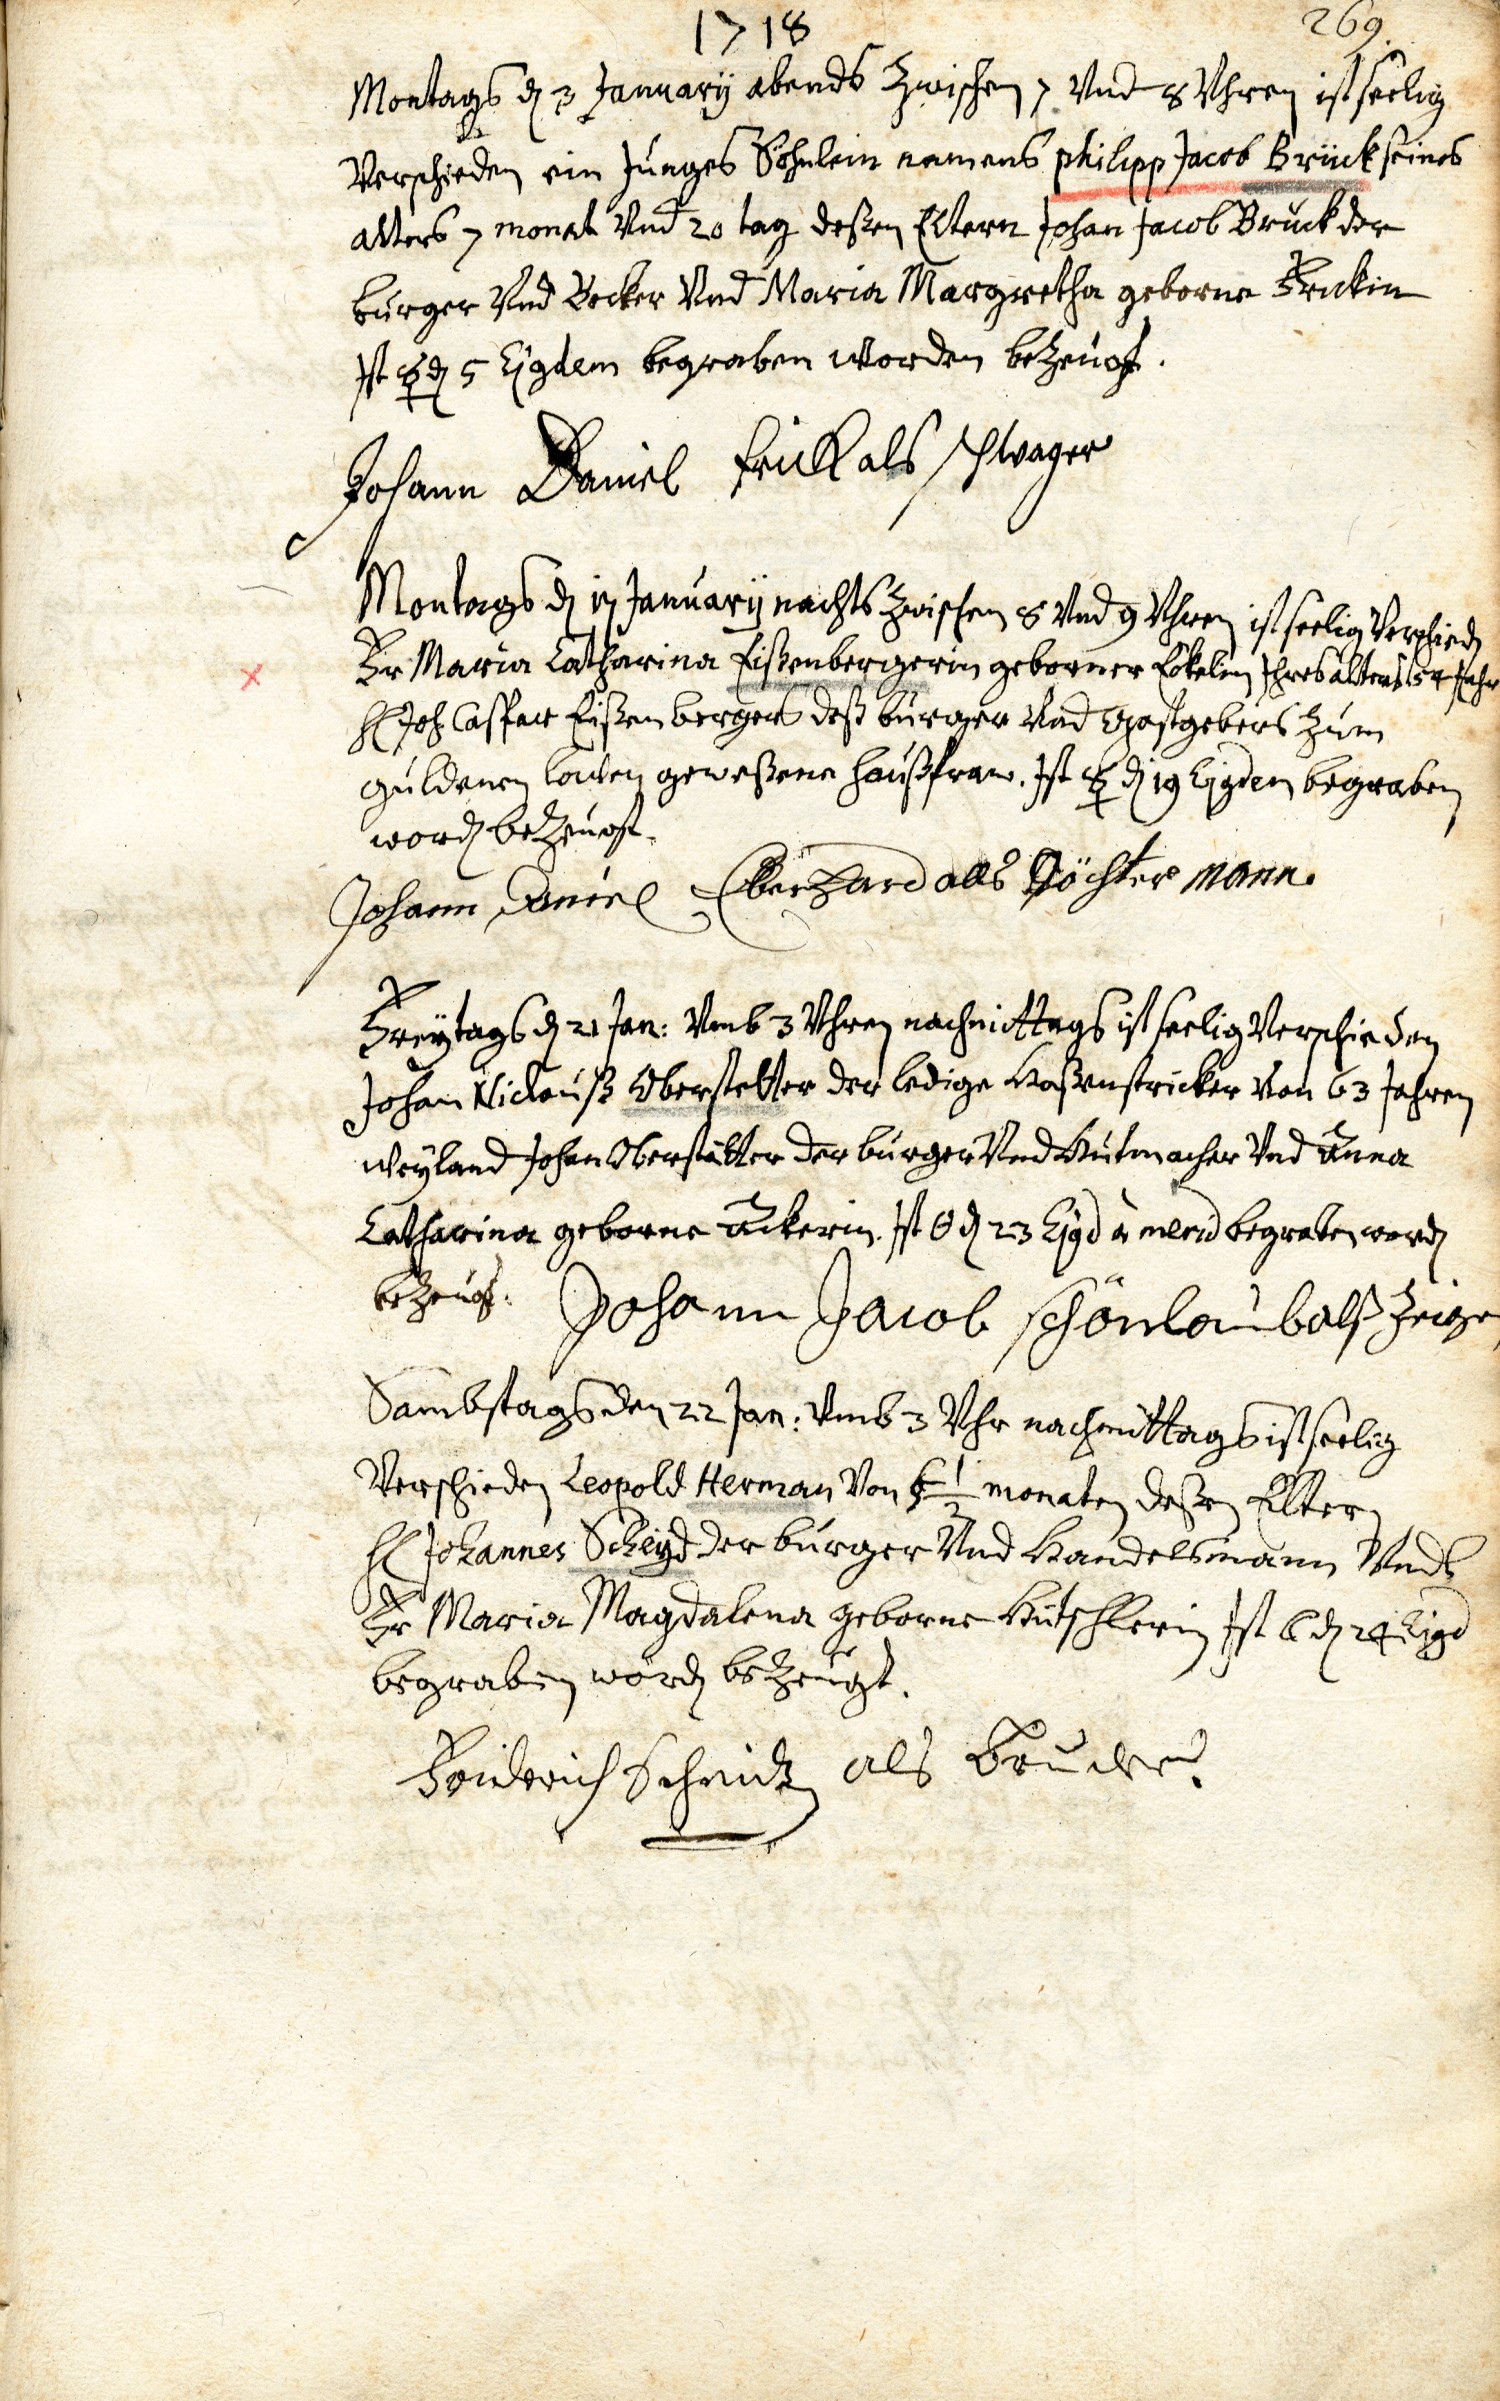 1718
269.
Montags d 3 January abends zwischen 7 Vnd 8 Vhren ist seelig
Verschieden ein Junges Söhnlein namens philipp Jacob Brück seines
alters 7 monat Vnd 20 tag deßen Eltern Johan Jacob Bruck der
burger Vnd Becker Vnd Maria Margretha geborne Frickin
Ist ☿ d 5 Ejqdem begraben worden bezeugt.
Johann Daniel frick als schwager
Montags d 17 January nachts zwischen 8 Vnd 9 Vhren ist seelig Verschied
Fr Maria Catharina Eißenbergerin geborner Eckelin Ihres alters 54 Jahr
H Joh Casspar Eißenbergers deß burger Vnd Gastgebers zum
guldenen lowen geweßene haußfraw. Ist ☿ d 19 Ejqdem begraben
word bezeugt.
Johann Daniel Eberhard alls Döchter mann.
Freytags d 21 Jan: Vmb 3 Vhren nachmittags ist seelig Verschieden
Johan Niclauß Oberstetter der ledige Hoßenstricker Von 63 Jahren
weyland Johan Oberstätter der burger Vnd Hutmacher Vnd Anna
Catharina geborne Äckerin. Ist d 23 Ejqd begraben word
bezeugt. Johann Jacob schönlaub alß zeige
Sambstags den 22 Jan: Vmb 3 Vhr nachmittags ist seelig
Verschieden Leopold Herman Von 5 1/2 monaten deßen Eltern
H Johannes Scheyd der burger Vnd Handelsmann Vndt
Fr Maria Magdalena geborne Hutschlerin Ist ☾ d 24 Ejqd
begraben word bezeugt.
Friderich Schmidt als bruder